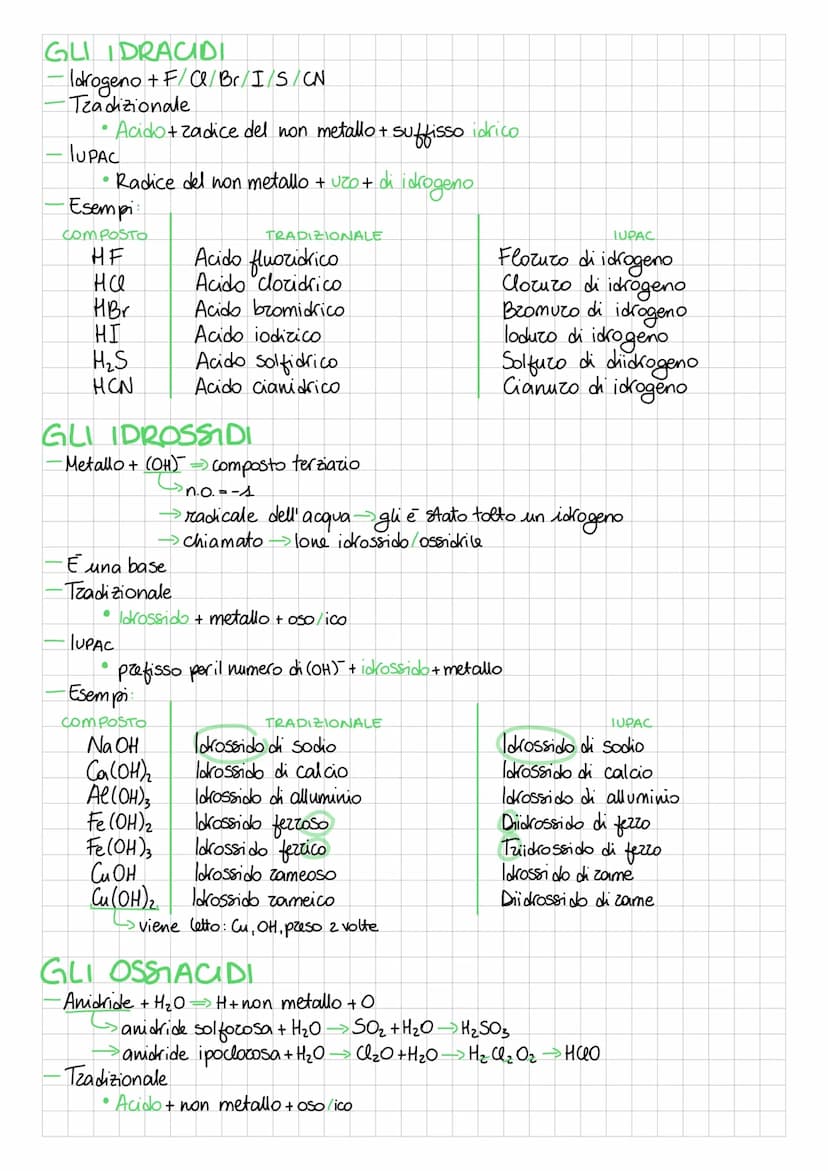 GLI IDRACIDI
– Idrogeno + F/Cl/Br/I/S/CN
– Tradizionale
• Acido + radice del non metallo + suffisso idrico
– IUPAC
• Radice del non metallo + uro + di idrogeno
– Esempi:
COMPOSTO TRADIZIONALE IUPAC
HF Acido fluoridrico Floruro di idrogeno
HCl Acido cloridrico Cloruro di idrogeno
HBr Acido bromidrico Bromuro di idrogeno
HI Acido iodirico Ioduro di idrogeno
H₂S Acido solfidrico Solfuro di diidrogeno
HCN Acido cianidrico Cianuro di idrogeno
GLI IDROSSIDI
– Metallo + (OH)⁻ ⇒ composto terziario
↳ n.o. = -1
→ radicale dell'acqua → gli è stato tolto un idrogeno
→ chiamato → Ione idrossido/ossidrile
– È una base
– Tradizionale
• Idrossido + metallo + oso/ico
– IUPAC
• prefisso per il numero di (OH)⁻ + idrossido + metallo
– Esempi:
COMPOSTO TRADIZIONALE IUPAC
NaOH Idrossido di sodio Idrossido di sodio
Ca(OH)₂ Idrossido di calcio Idrossido di calcio
Al(OH)₃ Idrossido di alluminio Idrossido di alluminio
Fe(OH)₂ Idrossido ferroso Diidrossido di ferro
Fe(OH)₃ Idrossido ferrico Triidrossido di ferro
CuOH Idrossido rameoso Idrossido di rame
Cu(OH)₂ Idrossido rameico Diidrossido di rame
↳ viene letto: Cu, OH, preso 2 volte
GLI OSSIACIDI
– Anidride + H₂O ⇒ H + non metallo + O
↳ anidride solforosa + H₂O → SO₂ + H₂O → H₂SO₃
→ anidride ipoclorosa + H₂O → Cl₂O + H₂O → H₂Cl₂O₂ → HClO
– Tradizionale
• Acido + non metallo + oso/ico